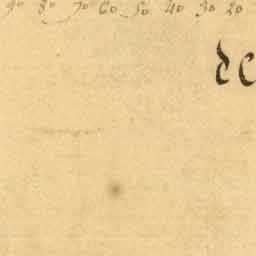 90 80 70 60 50 40 30 20
de